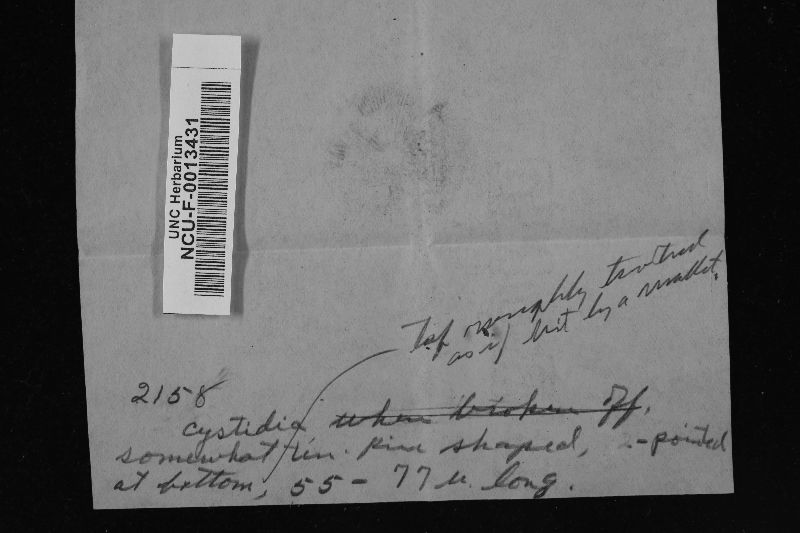 UNC Herbarium
NCU-F-0013431
Top roughly
as if hit by a mallet.
2158
cystidia when broken off.
somewhat pin shaped, -pointed
at bottom, 55 - 77 u. long.